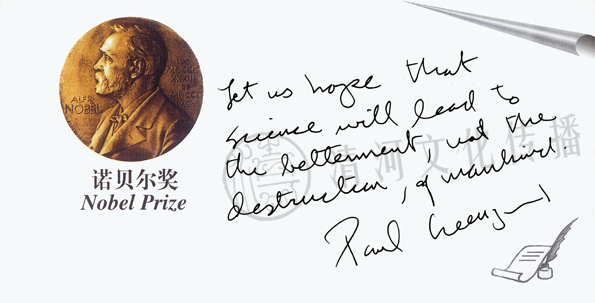 ALFR.
NOBEL
诺贝尔奖
Nobel Prize
Let us hope that
science will lead to
the betterment, not the
destruction, of mankind.
Paul Greengard
清河文化传播